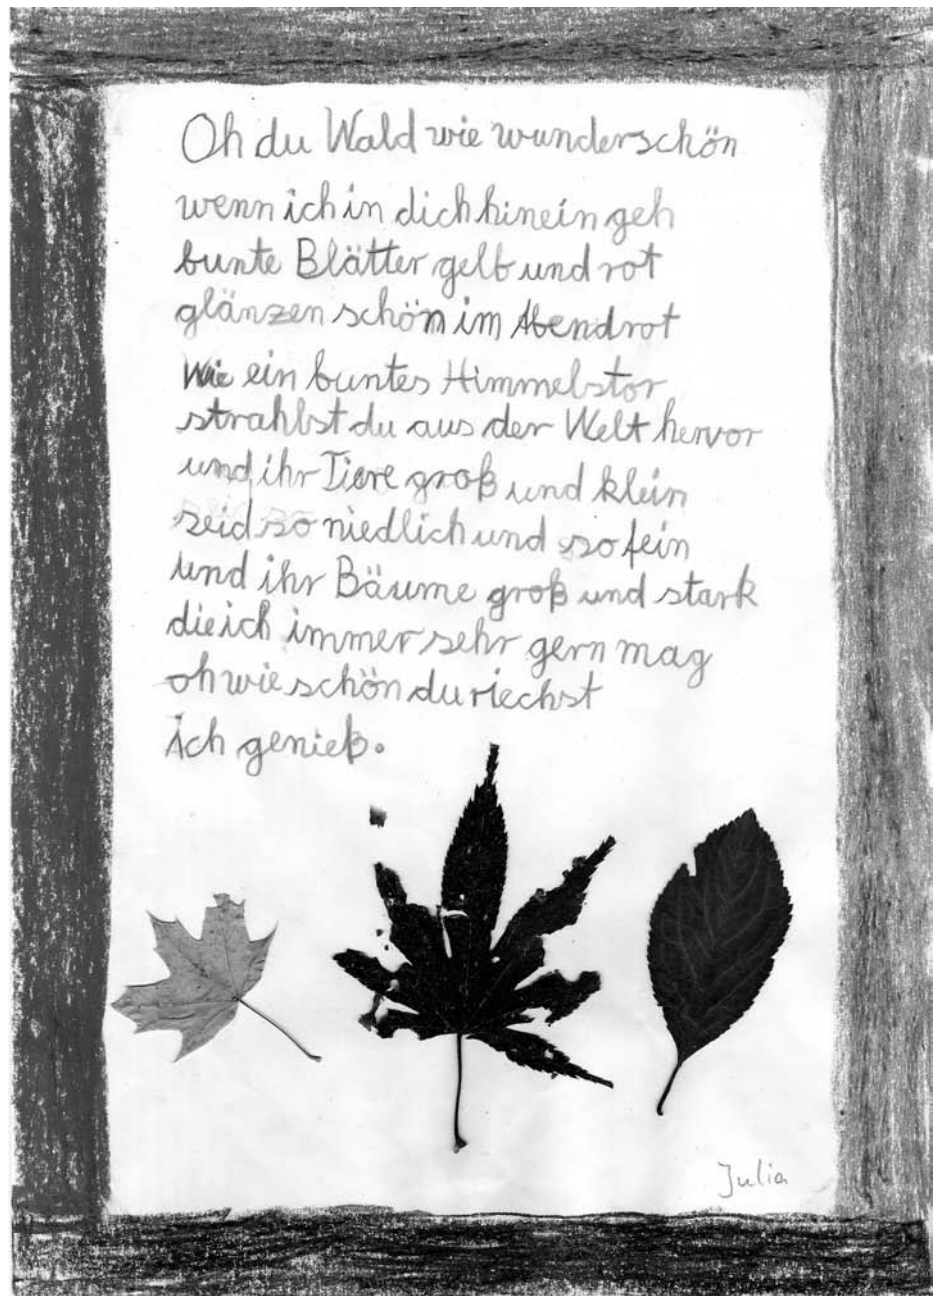 Oh du Wald wie wunderschön
wenn ich in dich hinein geh
bunte Blätter gelb und rot
glänzen schön im Abendrot
Wie ein buntes Himmelstor
strahlst du aus der Welt hervor
und ihr Tiere groß und klein
seid so niedlich und so fein
und ihr Bäume groß und stark
die ich immer sehr gern mag
oh wie schön du riechst
ich genieß.
Julia